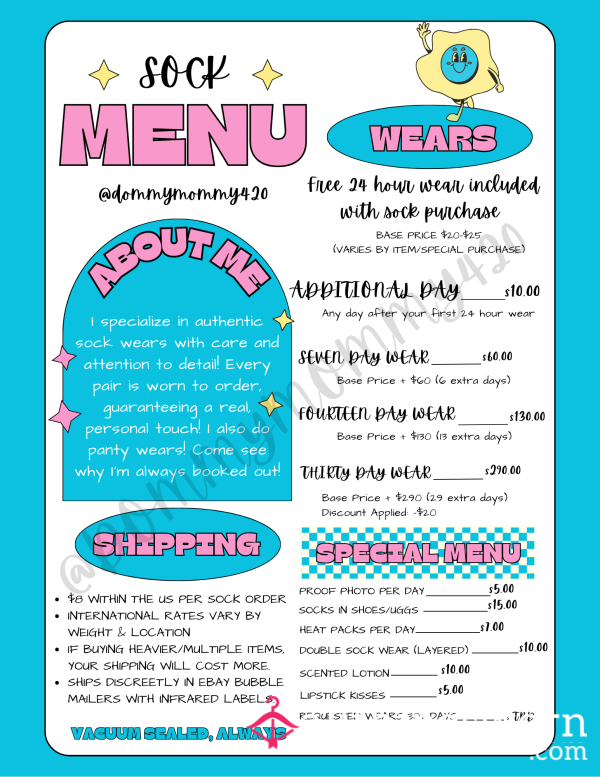 SOCK
MENU
@dommymommy420
ABOUT ME
I specialize in authentic
sock wears with care and
attention to detail! Every
pair is worn to order,
guaranteeing a real,
personal touch! I also do
panty wears! Come see
why I'm always booked out!
SHIPPING
• $8 WITHIN THE US PER SOCK ORDER
• INTERNATIONAL RATES VARY BY
WEIGHT & LOCATION
• IF BUYING HEAVIER/MULTIPLE ITEMS,
YOUR SHIPPING WILL COST MORE.
• SHIPS DISCREETLY IN EBAY BUBBLE
MAILERS WITH INFRARED LABELS
VACUUM SEALED, ALWAYS
WEARS
Free 24 hour wear included
with sock purchase
BASE PRICE $20-$25
(VARIES BY ITEM/SPECIAL PURCHASE)
ADDITIONAL DAY ______$10.00
Any day after your first 24 hour wear
SEVEN DAY WEAR ______$60.00
Base Price + $60 (6 extra days)
FOURTEEN DAY WEAR ______$130.00
Base Price + $130 (13 extra days)
THIRTY DAY WEAR ______$290.00
Base Price + $290 (29 extra days)
Discount Applied: -$20
SPECIAL MENU
PROOF PHOTO PER DAY ______$5.00
SOCKS IN SHOES/UGGS ______$15.00
HEAT PACKS PER DAY ______$7.00
DOUBLE SOCK WEAR (LAYERED) ______$10.00
SCENTED LOTION ______$10.00
LIPSTICK KISSES ______$5.00
REQUESTED WEARS 30+ DAYS
@dommymommy420
.com